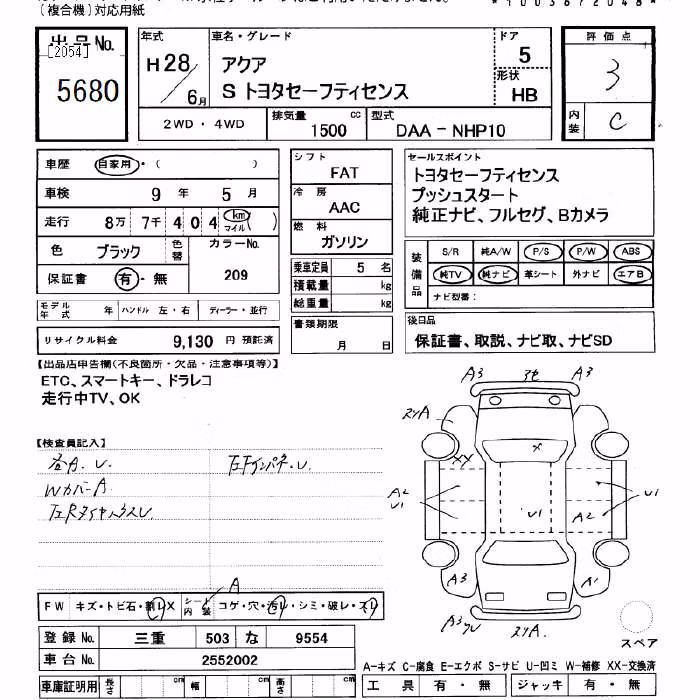 (複合機)対応用紙
出品No.
[2054]
5680
年式
H28
6月
車名・グレード
アクア
S トヨタセーフティセンス
ドア
5
形状
HB
評価点
3
内装
C
2WD ・ 4WD
排気量
1500 cc
型式
DAA-NHP10
車歴 自家用・( )
車検 9年 5月
走行 8万 7千 404 km マイル( )
色 ブラック
色替
カラーNo.
209
保証書 有・無
モデル年式 年 ハンドル 左・右 ディーラー・並行
リサイクル料金 9,130 円 預託済
シフト
FAT
冷房
AAC
燃料
ガソリン
乗車定員 5 名
積載量 kg
総重量 kg
書類期限
月 日
セールスポイント
トヨタセーフティセンス
プッシュスタート
純正ナビ、フルセグ、Bカメラ
装備品
S/R 純A/W P/S P/W ABS
純TV 純ナビ 革シート 外ナビ エアB
ナビ型番:
後日品
保証書、取説、ナビ取、ナビSD
【出品店申告欄(不良箇所・欠品・注意事項等)】
ETC、スマートキー、ドラレコ
走行中TV、OK
【検査員記入】
各A.U.
Wカバー A
A3
A3
A2
U1
XX
X
U1
A2
U1
A3
A1
FW キズ・トビ石・割レX
シート内装
A
コゲ・穴・汚レ・シミ・破レ・スレ
登録No. 三重 503 な 9554
車台No. 2552002
車庫証明用 長さ cm 幅 cm 高さ cm
スペア
A-キズ C-腐食 E-エクボ S-サビ U-凹ミ W-補修 XX-交換済
工具 有・無 ジャッキ 有・無